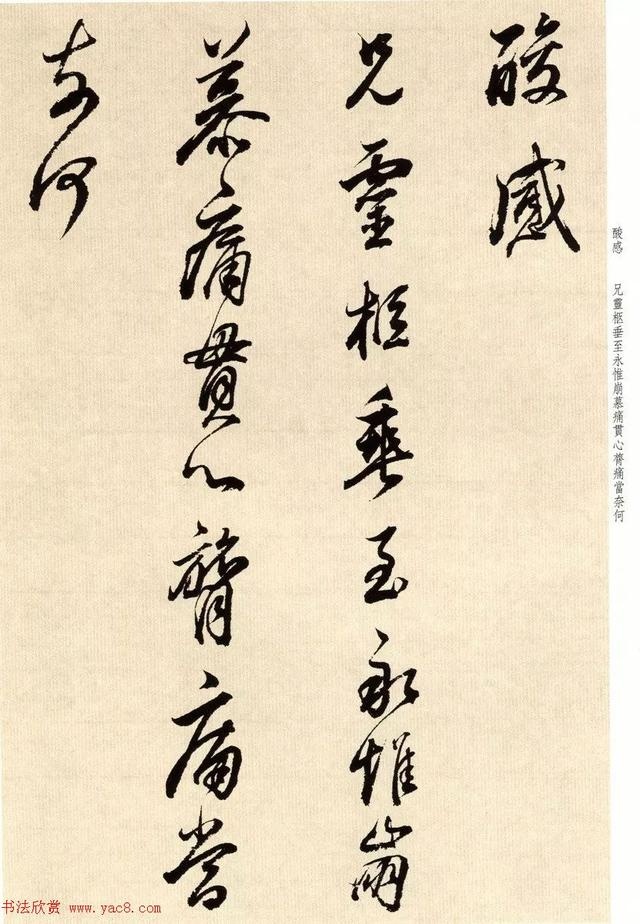 酸感
兄靈柩垂至永惟崩
慕痛貫心膂痛當
奈何
酸感 兄靈柩垂至永惟崩慕痛貫心膂痛當奈何
书法欣赏 www.yac8.com